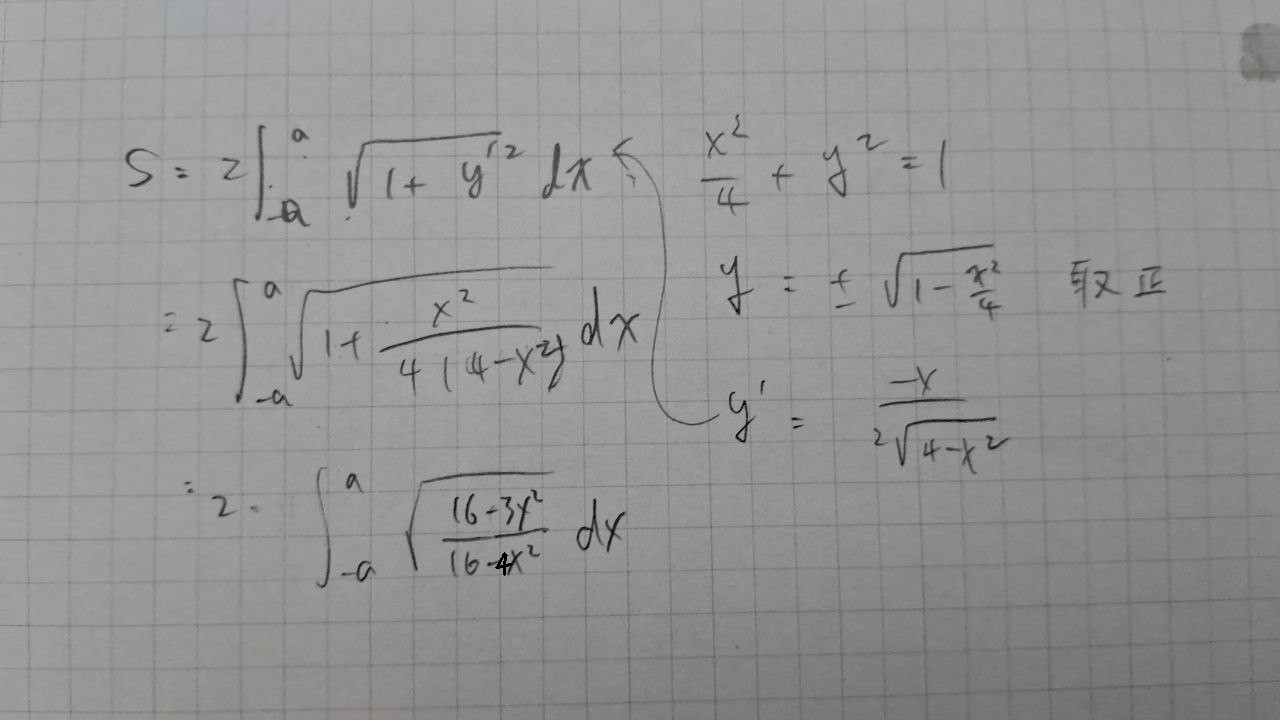 S = 2∫_{-a}^{a} √(1 + y'²) dx
= 2∫_{-a}^{a} √(1 + x²/(4(4-x²))) dx
= 2 · ∫_{-a}^{a} √((16-3x²)/(16-4x²)) dx
x²/4 + y² = 1
y = ± √(1 - x²/4) 取正
y' = -x/(2√(4-x²))